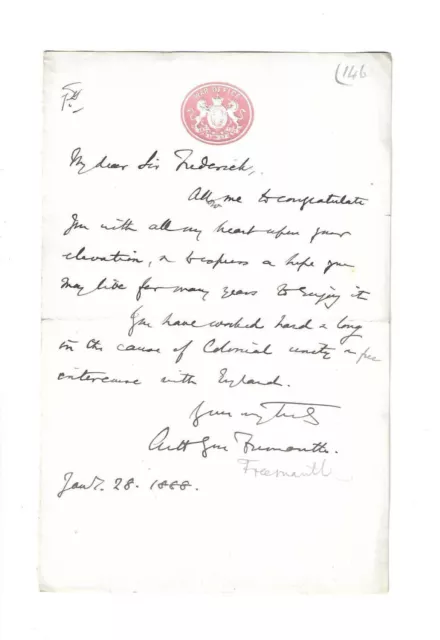 (146
WAR OFFICE
My dear Sir Frederick,
Allow me to congratulate
you with all my heart upon your
elevation, & to express a hope you
may live for many years to enjoy it
You have worked hard & long
in the cause of Colonial unity & free
intercourse with England.
Yours very truly
Fremantle
Fremantle
Jany. 28. 1888.